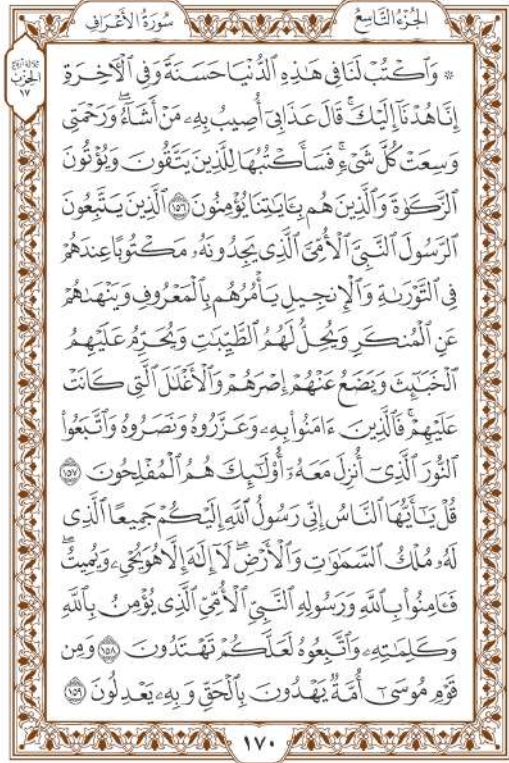 الجُزْءُ التَّاسِعُ
سُورَةُ الأَعْرَافِ
ثلاثة أرباع
الحزب
١٧
۞ وَٱكۡتُبۡ لَنَا فِي هَٰذِهِ ٱلدُّنۡيَا حَسَنَةٗ وَفِي ٱلۡأٓخِرَةِ
إِنَّا هُدۡنَآ إِلَيۡكَۚ قَالَ عَذَابِيٓ أُصِيبُ بِهِۦ مَنۡ أَشَآءُۖ وَرَحۡمَتِي
وَسِعَتۡ كُلَّ شَيۡءٖۚ فَسَأَكۡتُبُهَا لِلَّذِينَ يَتَّقُونَ وَيُؤۡتُونَ
ٱلزَّكَوٰةَ وَٱلَّذِينَ هُم بِـَٔايَٰتِنَا يُؤۡمِنُونَ ١٥٦ ٱلَّذِينَ يَتَّبِعُونَ
ٱلرَّسُولَ ٱلنَّبِيَّ ٱلۡأُمِّيَّ ٱلَّذِي يَجِدُونَهُۥ مَكۡتُوبًا عِندَهُمۡ
فِي ٱلتَّوۡرَىٰةِ وَٱلۡإِنجِيلِ يَأۡمُرُهُم بِٱلۡمَعۡرُوفِ وَيَنۡهَىٰهُمۡ
عَنِ ٱلۡمُنكَرِ وَيُحِلُّ لَهُمُ ٱلطَّيِّبَٰتِ وَيُحَرِّمُ عَلَيۡهِمُ
ٱلۡخَبَٰٓئِثَ وَيَضَعُ عَنۡهُمۡ إِصۡرَهُمۡ وَٱلۡأَغۡلَٰلَ ٱلَّتِي كَانَتۡ
عَلَيۡهِمۡۚ فَٱلَّذِينَ ءَامَنُواْ بِهِۦ وَعَزَّرُوهُ وَنَصَرُوهُ وَٱتَّبَعُواْ
ٱلنُّورَ ٱلَّذِيٓ أُنزِلَ مَعَهُۥٓ أُوْلَٰٓئِكَ هُمُ ٱلۡمُفۡلِحُونَ ١٥٧
قُلۡ يَٰٓأَيُّهَا ٱلنَّاسُ إِنِّي رَسُولُ ٱللَّهِ إِلَيۡكُمۡ جَمِيعًا ٱلَّذِي
لَهُۥ مُلۡكُ ٱلسَّمَٰوَٰتِ وَٱلۡأَرۡضِۖ لَآ إِلَٰهَ إِلَّا هُوَ يُحۡيِۦ وَيُمِيتُۖ
فَـَٔامِنُواْ بِٱللَّهِ وَرَسُولِهِ ٱلنَّبِيِّ ٱلۡأُمِّيِّ ٱلَّذِي يُؤۡمِنُ بِٱللَّهِ
وَكَلِمَٰتِهِۦ وَٱتَّبِعُوهُ لَعَلَّكُمۡ تَهۡتَدُونَ ١٥٨ وَمِن
قَوۡمِ مُوسَىٰٓ أُمَّةٞ يَهۡدُونَ بِٱلۡحَقِّ وَبِهِۦ يَعۡدِلُونَ ١٥٩
١٧٠